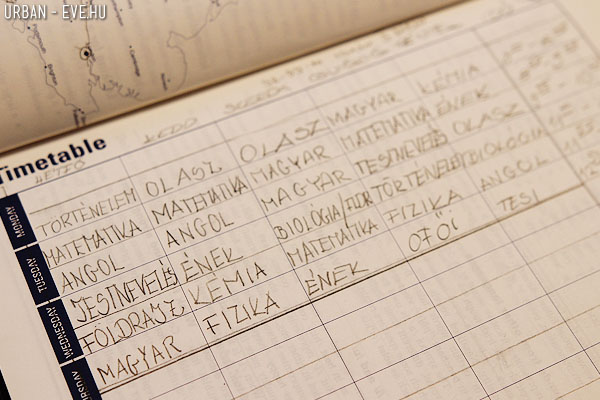 URBAN - EVE.HU
Timetable
HÉTFŐ KEDD SZERDA
MONDAY
TUESDAY
WEDNESDAY
TÖRTÉNELEM OLASZ OLASZ MAGYAR KÉMIA
MATEMATIKA MATEMATIKA MAGYAR MATEMATIKA ÉNEK
ANGOL ANGOL MAGYAR TESTNEVELÉS OLASZ
TESTNEVELÉS ÉNEK BIOLÓGIA TÖRTÉNELEM BIOLOGIA
FÖLDRAJZ KÉMIA MATEMATIKA FIZIKA ANGOL
MAGYAR FIZIKA ÉNEK OFŐI TESI